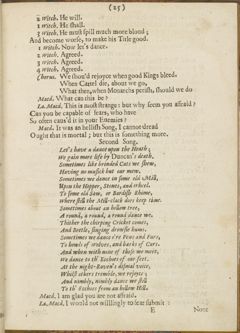 (25)
2 witch. He will.
1 witch. He shall.
3 witch. He must spill much more bloud;
And become worse, to make his Title good.
1 witch. Now let's dance.
2 witch. Agreed.
3 witch. Agreed.
4 witch. Agreed.
Chorus. We shou'd rejoyce when good Kings bleed.
When Cattel die, about we go,
What then, when Monarchs perish, should we do
Macd. What can this be?
La. Macd. This is most strange: but why seem you affraid?
Can you be capable of fears, who have
So often caus'd it in your Enemies?
Macd. It was an hellish Song, I cannot dread
Ought that is mortal; but this is something more.
Second Song.
Let's have a dance upon the Heath;
We gain more life by Duncan's death.
Sometimes like brinded Cats we shew,
Having no musick but our mew,
Sometimes we dance in some old Mill,
Upon the Hopper, Stones, and wheel.
To some old Saw, or Bardish Rhime,
where still the Mill-clack does keep time.
Sometimes about an hollow tree,
A round, a round, a round dance we.
Thither the chirping Cricket comes,
And Beetle, singing drowsie hums.
Sometimes we dance o're Fens and Furs,
To howls of Wolves, and barks of Curs.
And when with none of those we meet,
We dance to th' Ecchoes of our feet.
At the night-Raven's dismal voice,
Whilst others tremble, we rejoyce;
And nimbly, nimbly dance we still
To th' Ecchoes from an hollow Hill.
Macd. I am glad you are not affraid.
La. Macd. I would not willingly to fear submit:
E
None